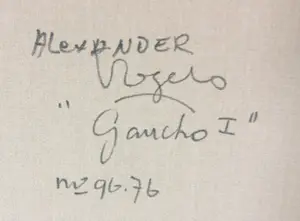 ALEXANDER
Vogelo
" Gaucho I "
nº 96.76